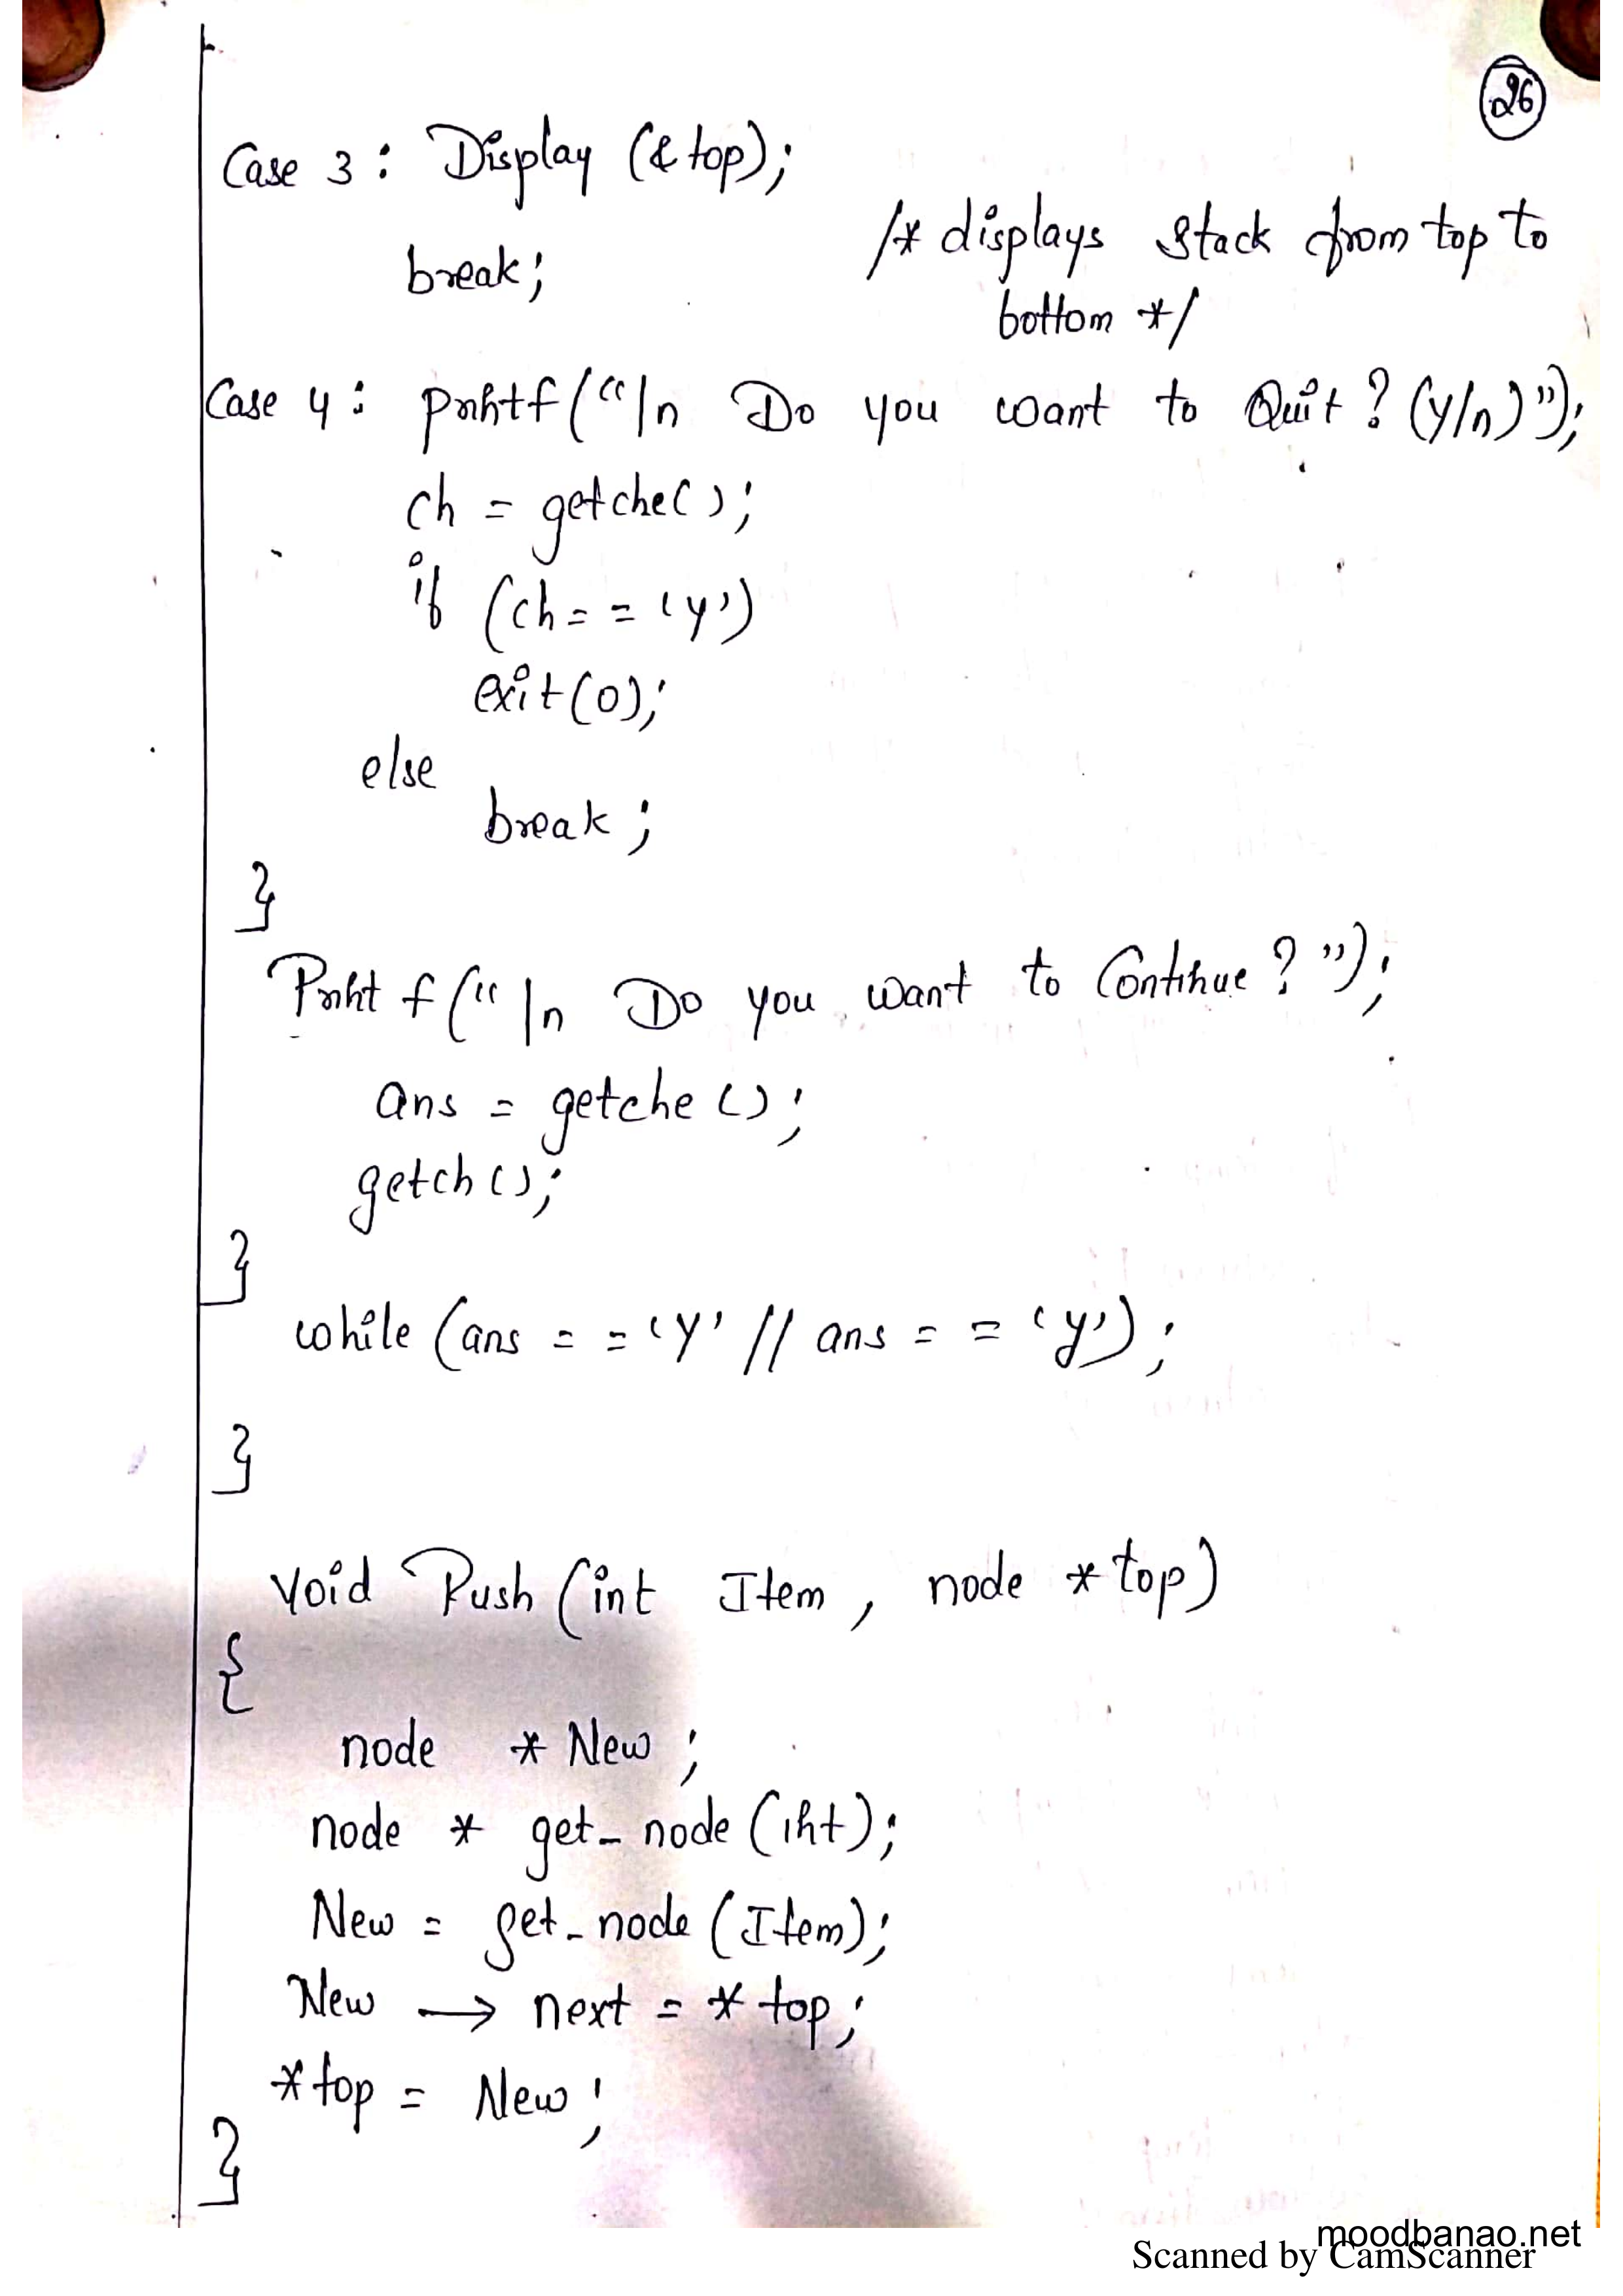 26
Case 3 : Display (& top);
/* displays stack from top to
break;
bottom */
Case 4 : printf("\n Do you want to Quit ? (y/n)");
ch = getche();
if (ch = = 'y')
exit(0);
else
break ;
}
Printf("\n Do you want to Continue ? ");
ans = getche ();
getch();
}
while (ans = = 'Y' || ans = = 'y') ;
}
Void Push (int Item , node * top)
{
node * New ;
node * get_ node (int);
New = get_node (Item);
New → next = * top;
* top = New ;
}
moodbanao.net
Scanned by CamScanner